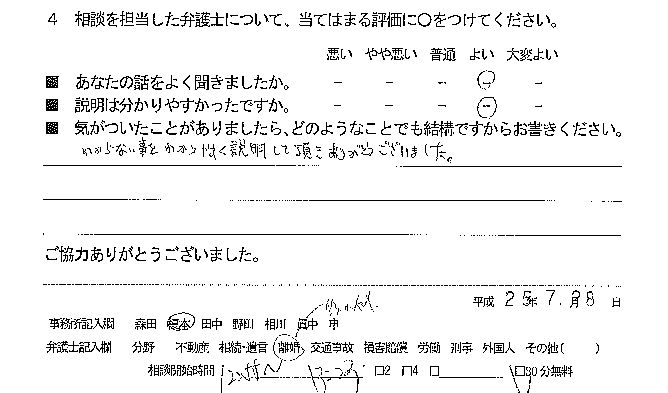 4 相談を担当した弁護士について、当てはまる評価に○をつけてください。
悪い やや悪い 普通 よい 大変よい
あなたの話をよく聞きましたか。 - - - - -
説明は分かりやすかったですか。 - - - - -
気がついたことがありましたら、どのようなことでも結構ですからお書きください。
わからない事をわかり性く説明して頂きありがとうございました。
ご協力ありがとうございました。
平成 25年 7.月28 日
事務所記入欄 森田 榎本 田中 野田 相川 真中 市
弁護士記入欄 分野 不動産 相続・遺言 離婚 交通事故 損害賠償 労働 刑事 外国人 その他( )
相談開始時間 □2 □4 □ □30分無料